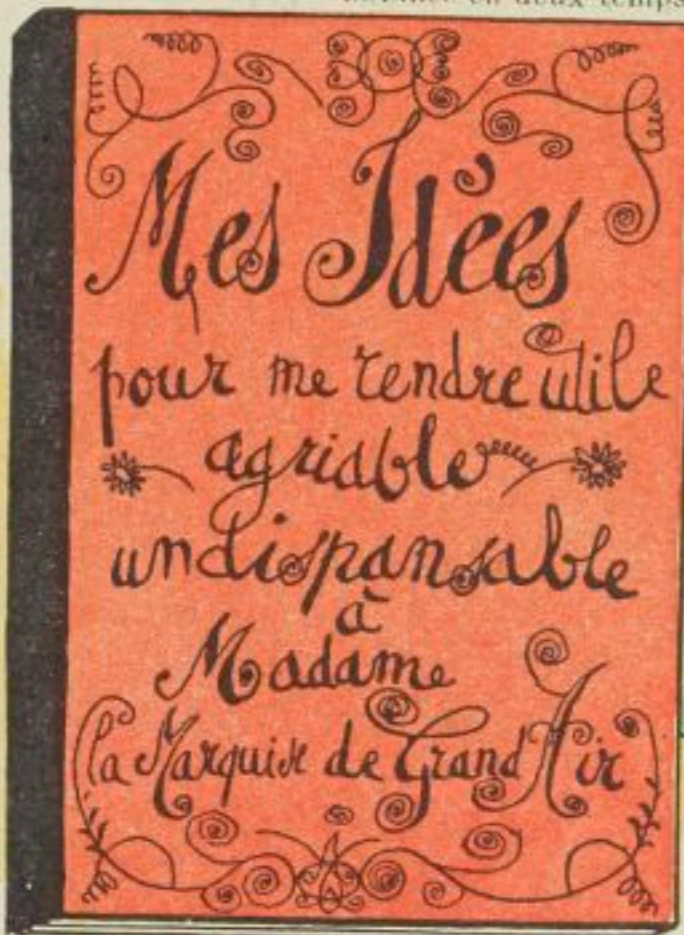 en deux temps
Mes Idèes
pour me rendre utile
agriable
undispansable
à
Madame
la Marquise de Grand Air